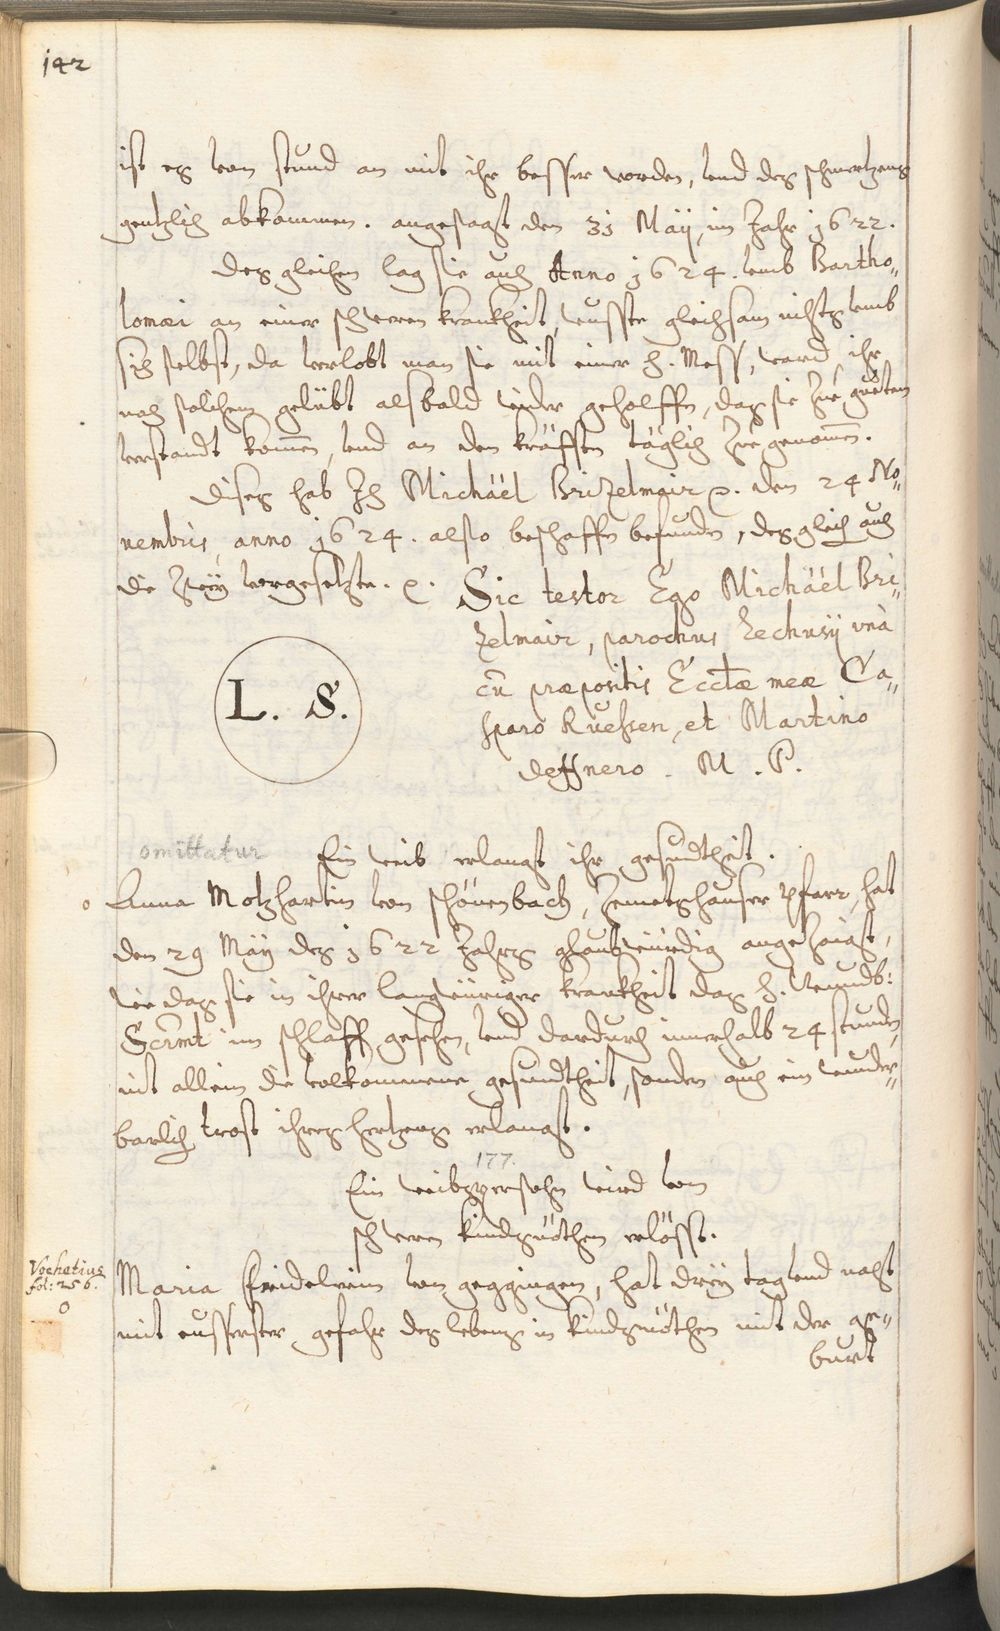 142
ist es von stund an mit ihr besser worden, vnd des schmertzens
gentzlich abkommen. angesagt den 31 Maÿ, im Jahr 1622.
Desgleichen lag sie auch Anno 1624. vmb Bartho„
lomæi an einer schweren kranckheit, wusste gleichsam nichts vmb
sich selbst, da verlobt man sie mit einer h. Mess, ward ihr
nach solchem gelübt alsbald wider geholffen, das sie zue guetem
verstandt kom̄en, vnd an den kräfften täglich zue genom̄en.
Dises hab Ich Michäel Brizelmair p. den 24 No„
uembris, anno 1624. also beschaffen befunden, desgleich auch
die zweÿ vorgesetzte. p. Sic testor Ego Michäel Bri„
zelmair, parochus Zechusij vnà
cū præpositis Ecctæ meæ Ca„
sparo Ruessen, et Martino
deffnero. M. P.
L. S.
omittatur
Ein weib erlangt ihr gesundtheit.
o Anna Motzhartin von schönenbach, Zemetshauser pfarr, hat
den 29 Maÿ des 1622 Jahrs glaubwürdig angezaigt,
wie das sie in ihrer langwüriger kranckheit das h. Wundb:
Scrmt im schlaff gesehen, vnd dardurch innerhalb 24 stunden,
nit allein die volkommene gesundtheit, sonder auch ein wunder„
barlich trost ihres hertzens erlangt.
177.
Ein weibspersohn wird von
schweren kindsnöthen erlösst.
Vochetius
fol: 256.
o
Maria Heidelerin von geggingen, hat dreÿ tag vnd nacht
mit eusserster gefahr des lebens in kindsnöthen mit der ge„
burt